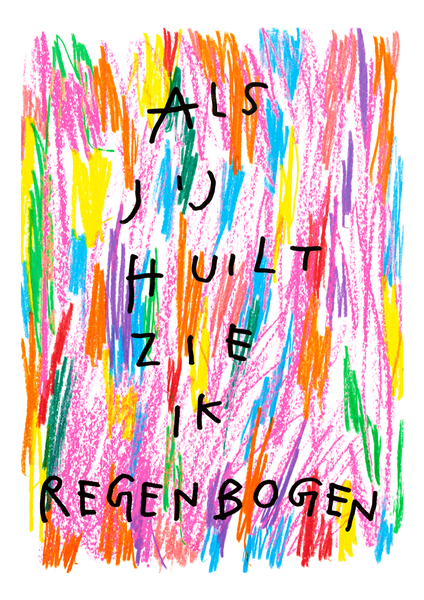 ALS
JIJ
HUILT
ZIE
IK
REGENBOGEN